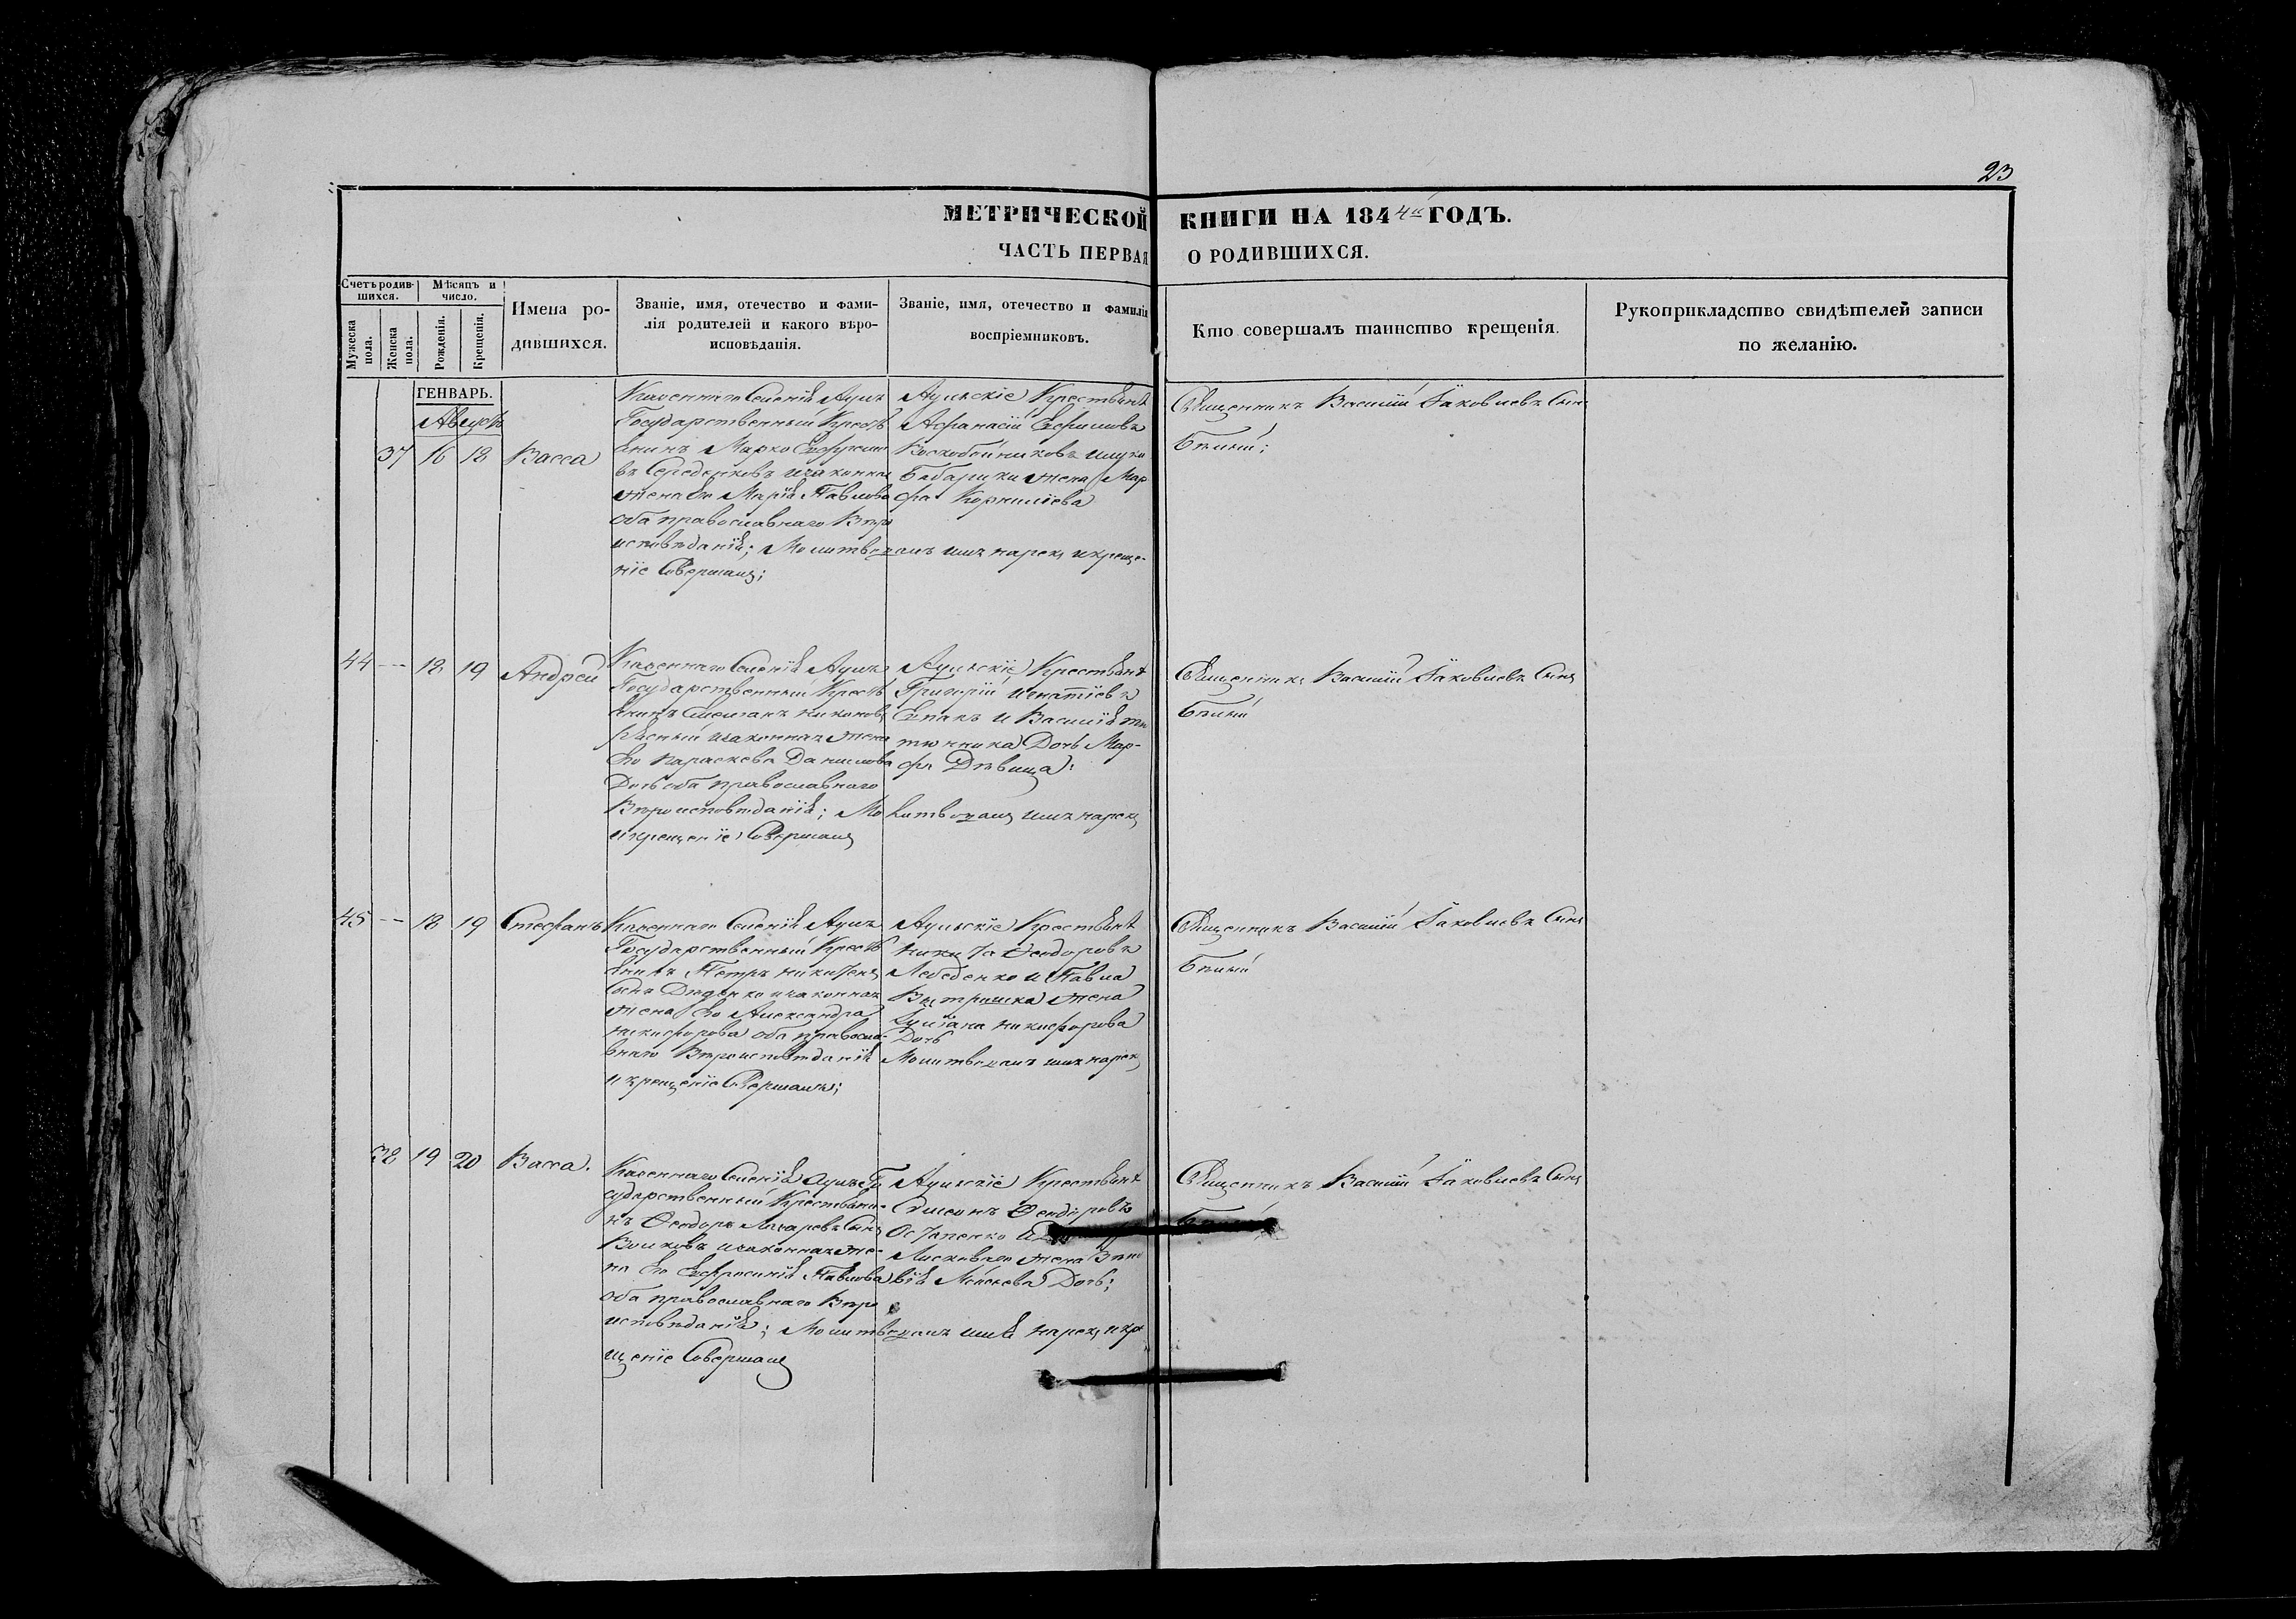 23
МЕТРИЧЕСКОЙ КНИГИ НА 1844й ГОДЪ.
ЧАСТЬ ПЕРВАЯ О РОДИВШИХСЯ.
Счетъ родившихся.
Мужеска пола.
Женска пола.
Мѣсяцъ и число.
Рожденія.
Крещенія.
Имена родившихся.
Званіе, имя, отечество и фамилія родителей и какого вѣроисповѣданія.
Званіе, имя, отечество и фамилія воспріемниковъ.
Кто совершалъ таинство крещенія.
Рукоприкладство свидѣтелей записи по желанію.
ГЕНВАРЬ.
Августъ
37 16 18 Васса
Казеннаго Селенія Ауль
Государственный Крестья
янинъ Марко
въ Середенковъ и законная
жена его Марія Павлова
оба православнаго Вѣро
исповѣданія; Молитвовалъ имя нарекъ и креще-
ніе Совершалъ;
Аульскіе Крестьяне
Афанасій Ефимовъ
Воскобойниковъ и
жена Мар
фа Корнилієва
Священникъ Василій Іаковлевъ Сынъ
Бѣлый;
44 -- 18 19 Андрей
Казеннаго Селенія Ауль
Государственный Крестья
янинъ Никоновъ
и законная жена
его Параскева Данилова
Дочь оба православнаго
Вѣроисповѣданія; Молитвовалъ имя нарекъ
и крещеніе Совершалъ
Аульскіе Крестьяне
Григорій Игнатіевъ
и Василія
Дочь Мар-
фа Дѣвица:
Священникъ Василій Іаковлевъ Сынъ
Бѣлый
45 -- 18 19 Стефанъ
Казеннаго Селенія Ауль
Государственный Крестья
янинъ Петръ Никитинъ
Сынъ Дядько и законная
жена его Александра
Никифорова оба правосла-
внаго Вѣроисповѣданія Молитвовалъ имя нарекъ
и крещеніе Совершалъ;
Аульскіе Крестьяне
Никита Феодоровъ
Лебеденко и Павла
жена
Іуліана Никифорова
Дочь
Священникъ Василій Іаковлевъ Сынъ
Бѣлый
38 19 20 Васса.
Казеннаго Селенія Ауль Го
сударственный Крестьяни-
нъ Феодоръ Лазаревъ Сынъ
Волковъ и законная же-
на его Ефросинія Павлова
оба православнаго Вѣро
исповѣданія; Молитвовалъ имя нарекъ и кре
щеніе Совершалъ
Аульскіе Крестьяне
Симеонъ Феодоровъ
Остапенко
жена Зѣно
вія Дочь;
Священникъ Василій Іаковлевъ Сынъ